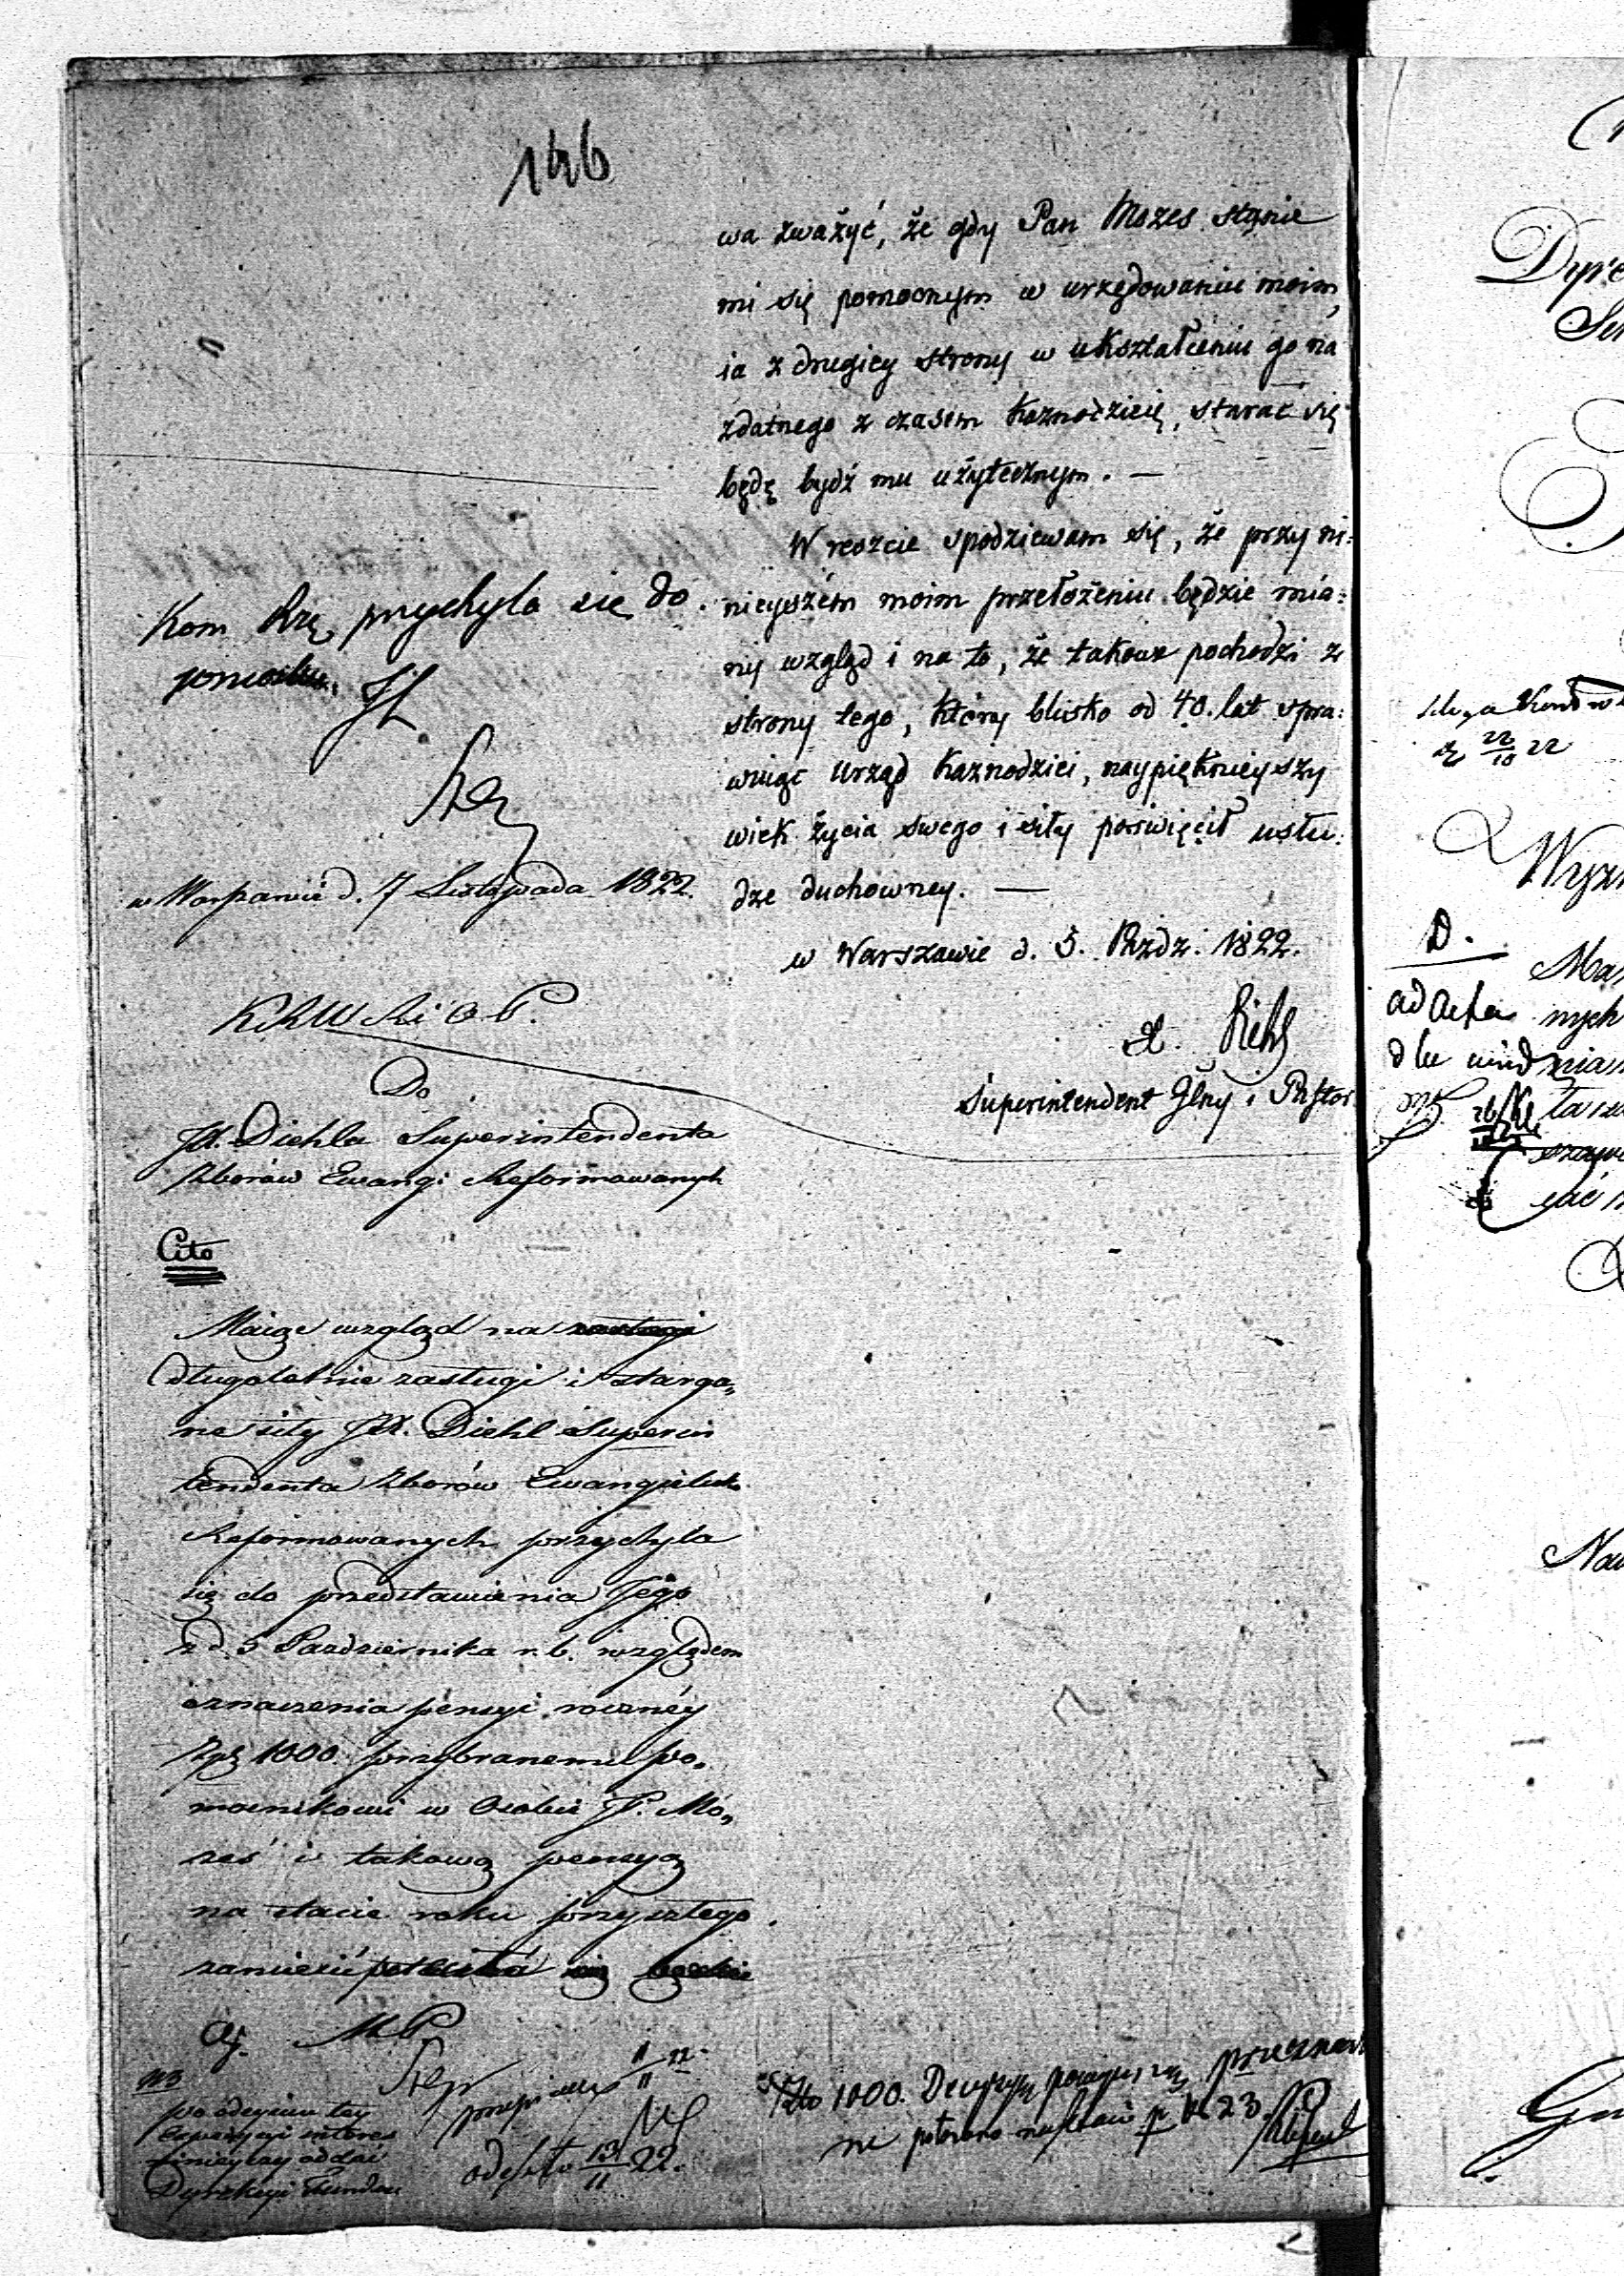 146
wa zważyć, że gdy Pan Mozes stanie
mi się pomocnym w urzędowaniu moim,
ia z drugiey strony w ukształceniu go na
zdatnego z czasem Kaznodzieię, starać się
będę bydź mu użytecznym. —
W reszcie spodziewam się, że przy ni:
nieyszém moim przełożeniu będzie mia:
ny wzgląd i na to, że takowe pochodzi z
strony tego, który blisko od 40. lat spra:
wuiąc urząd Kaznodziei, naypięknieyszy
wiek życia swego i siły poświęcił usłu:
dze duchowney. —
w Warszawie d. 5. Paźdz: 1822.
Diehl
Superintendent Glny i Pastor
Kom Rzą przychyla się do
wniosku.
w Warszawie d. 7 Listopada 1822.
KRWRiOP.
Do
JX. Diehla Superintendenta
Zborów Ewang: Reformowanych
Cito
Maiąc wzgląd na zasługi
długoletnie zasługi i starga„
ne siły JX. Diehl Superin
tendenta Zborów Ewangielick
Reformowanych przychyla
się do przedstawienia Jego
z d. 5 Pazdziernika r. b. względem
oznaczenia pensyi roczney
Złp 1000. przybranemu po„
mocnikowi w Osobie JP. Mo„
zes i takową pensyą
na etacie roku przyszłego
zamieścić
NB
po odeyściu tey
Expedycyi interes
ninieyszy oddać
Dyrekcyi Fundu
11/11 22.
odeszło 13/11 22.
1000. Decyzyą powyższą
p R 23.
Dyre
22/10 22
Wyzn
D.
ad acta
dla